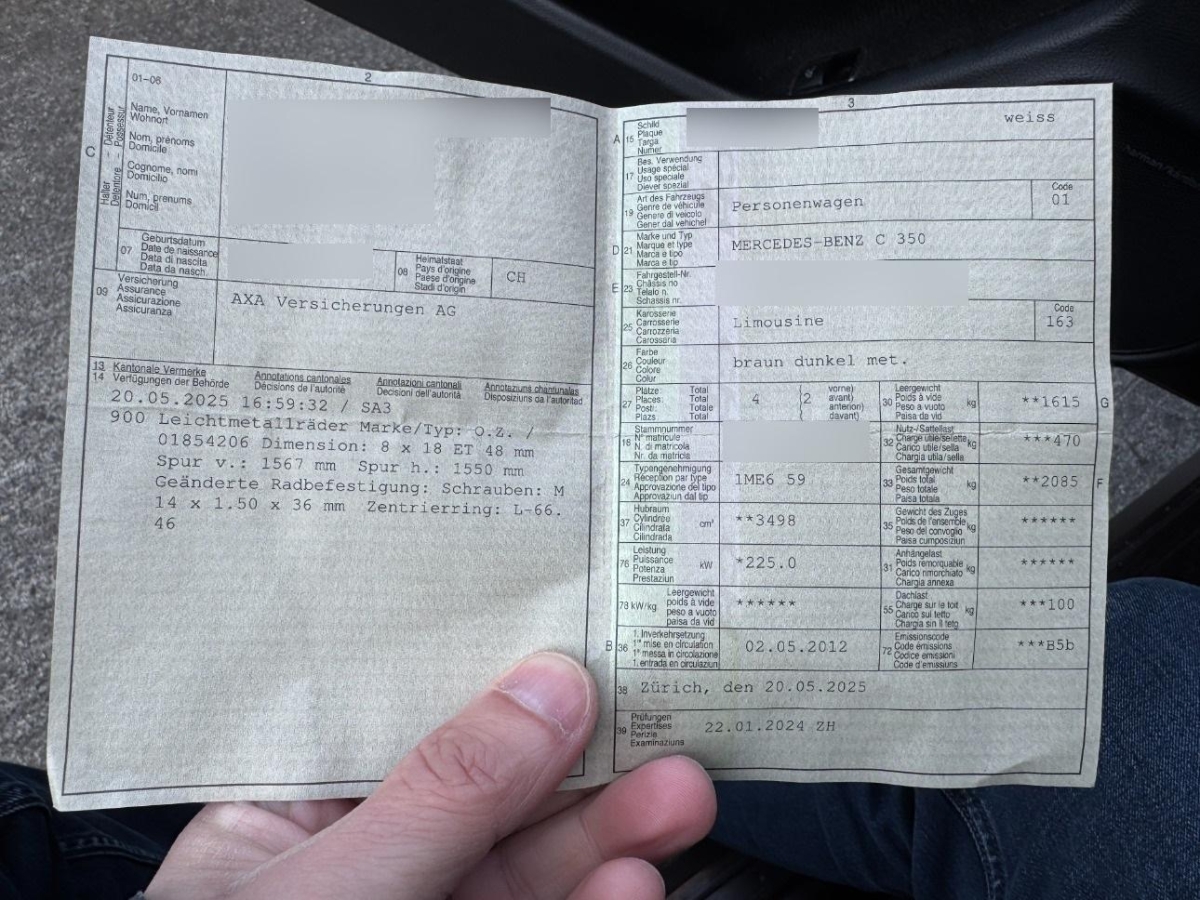 2
01-06
C
Halter - Détenteur
Detentore - Possessur
Name, Vornamen
Wohnort
Nom, prénoms
Domicile
Cognome, nomi
Domicilio
Num, prenums
Domicil
07
Geburtsdatum
Date de naissance
Data di nascita
Data da nasch.
08
Heimatstaat
Pays d'origine
Paese d'origine
Stadi d'origin
CH
09
Versicherung
Assurance
Assicurazione
Assicuranza
AXA Versicherungen AG
13 Kantonale Vermerke Annotations cantonales Annotazioni cantonali Annotaziuns chantunalas
14 Verfügungen der Behörde Décisions de l'autorité Decisioni dell'autorità Disposiziuns da l'autoritad
20.05.2025 16:59:32 / SA3
900 Leichtmetallräder Marke/Typ: O.Z. /
01854206 Dimension: 8 x 18 ET 48 mm
Spur v.: 1567 mm Spur h.: 1550 mm
Geänderte Radbefestigung: Schrauben: M
14 x 1.50 x 36 mm Zentrierring: L-66.
46
3
A 15
Schild
Plaque
Targa
Numer
weiss
17
Bes. Verwendung
Usage spécial
Uso speciale
Diever spezial
19
Art des Fahrzeugs
Genre de véhicule
Genere di veicolo
Gener dal vehichel
Personenwagen
Code
01
D 21
Marke und Typ
Marque et type
Marca e tipo
Marca e tip
MERCEDES-BENZ C 350
E 23
Fahrgestell-Nr.
Châssis no
Telaio n.
Schassis nr.
25
Karosserie
Carrosserie
Carrozzeria
Carossaria
Limousine
Code
163
26
Farbe
Couleur
Colore
Colur
braun dunkel met.
27
Plätze: Total
Places: Total
Posti: Totale
Plazs: Total
4 (2 vorne)
avant)
anteriori)
davant)
30
Leergewicht
Poids à vide
Peso a vuoto
Paisa da vid
kg
**1615
G
18
Stammnummer
N° matricule
N. di matricola
Nr. da matricla
32
Nutz-/Sattellast
Charge utile/sellette
Carico utile/sella
Chargia utila/sella
kg
***470
24
Typengenehmigung
Réception par type
Approvazione del tipo
Approvaziun dal tip
1ME6 59
33
Gesamtgewicht
Poids total
Peso totale
Paisa totala
kg
**2085
F
37
Hubraum
Cylindrée
Cilindrata
Cilindrada
cm³
**3498
35
Gewicht des Zuges
Poids de l'ensemble
Peso del convoglio
Paisa cumposiziun
kg
******
76
Leistung
Puissance
Potenza
Prestaziun
kW
*225.0
31
Anhängelast
Poids remorquable
Carico rimorchiato
Chargia annexa
kg
******
78 kW/kg
Leergewicht
poids à vide
peso a vuoto
paisa da vid
******
55
Dachlast
Charge sur le toit
Carico sul tetto
Chargia sin il tetg
kg
***100
B 36
1. Inverkehrsetzung
1re mise en circulation
1a messa in circolazione
1. entrada en circulaziun
02.05.2012
72
Emissionscode
Code émissions
Codice emissioni
Code d'emissiuns
***B5b
38 Zürich, den 20.05.2025
39
Prüfungen
Expertises
Perizie
Examinaziuns
22.01.2024 ZH